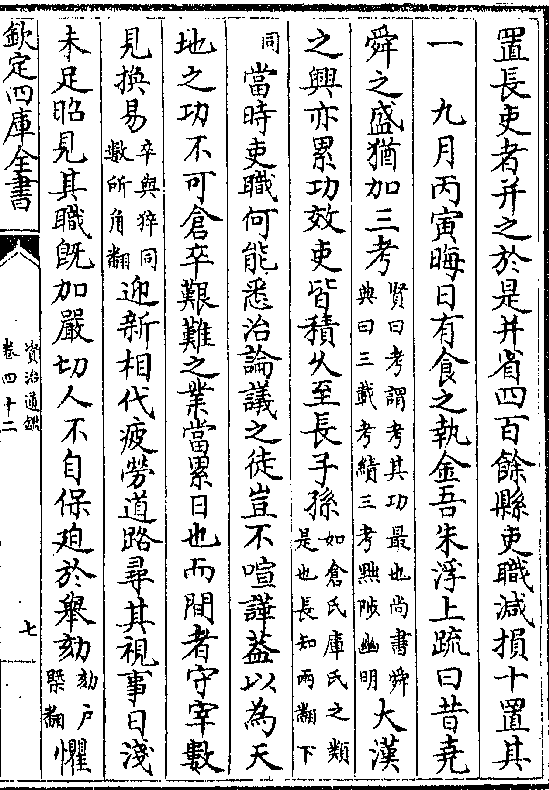 置長吏者并之於是并省四百餘縣吏職減損十置其
一　九月丙寅晦日有食之執金吾朱浮上疏曰昔堯
舜之盛猶加三考賢曰考謂考其功最也尚書舜典曰三載考績三考黜陟幽明大漢
之興亦累功效吏皆積久至長子孫如倉氏庫氏之類是也長知兩翻下
同當時吏職何能悉治論議之徒豈不喧譁蓋以為天
地之功不可倉卒艱難之業當累日也而間者守宰數
見換易卒與猝同數所角翻迎新相代疲勞道路尋其視事日淺
未足昭見其職既加嚴切人不自保廹於舉劾劾戶槩翻懼
欽定四庫全書
資治通鑑
卷四十二
七